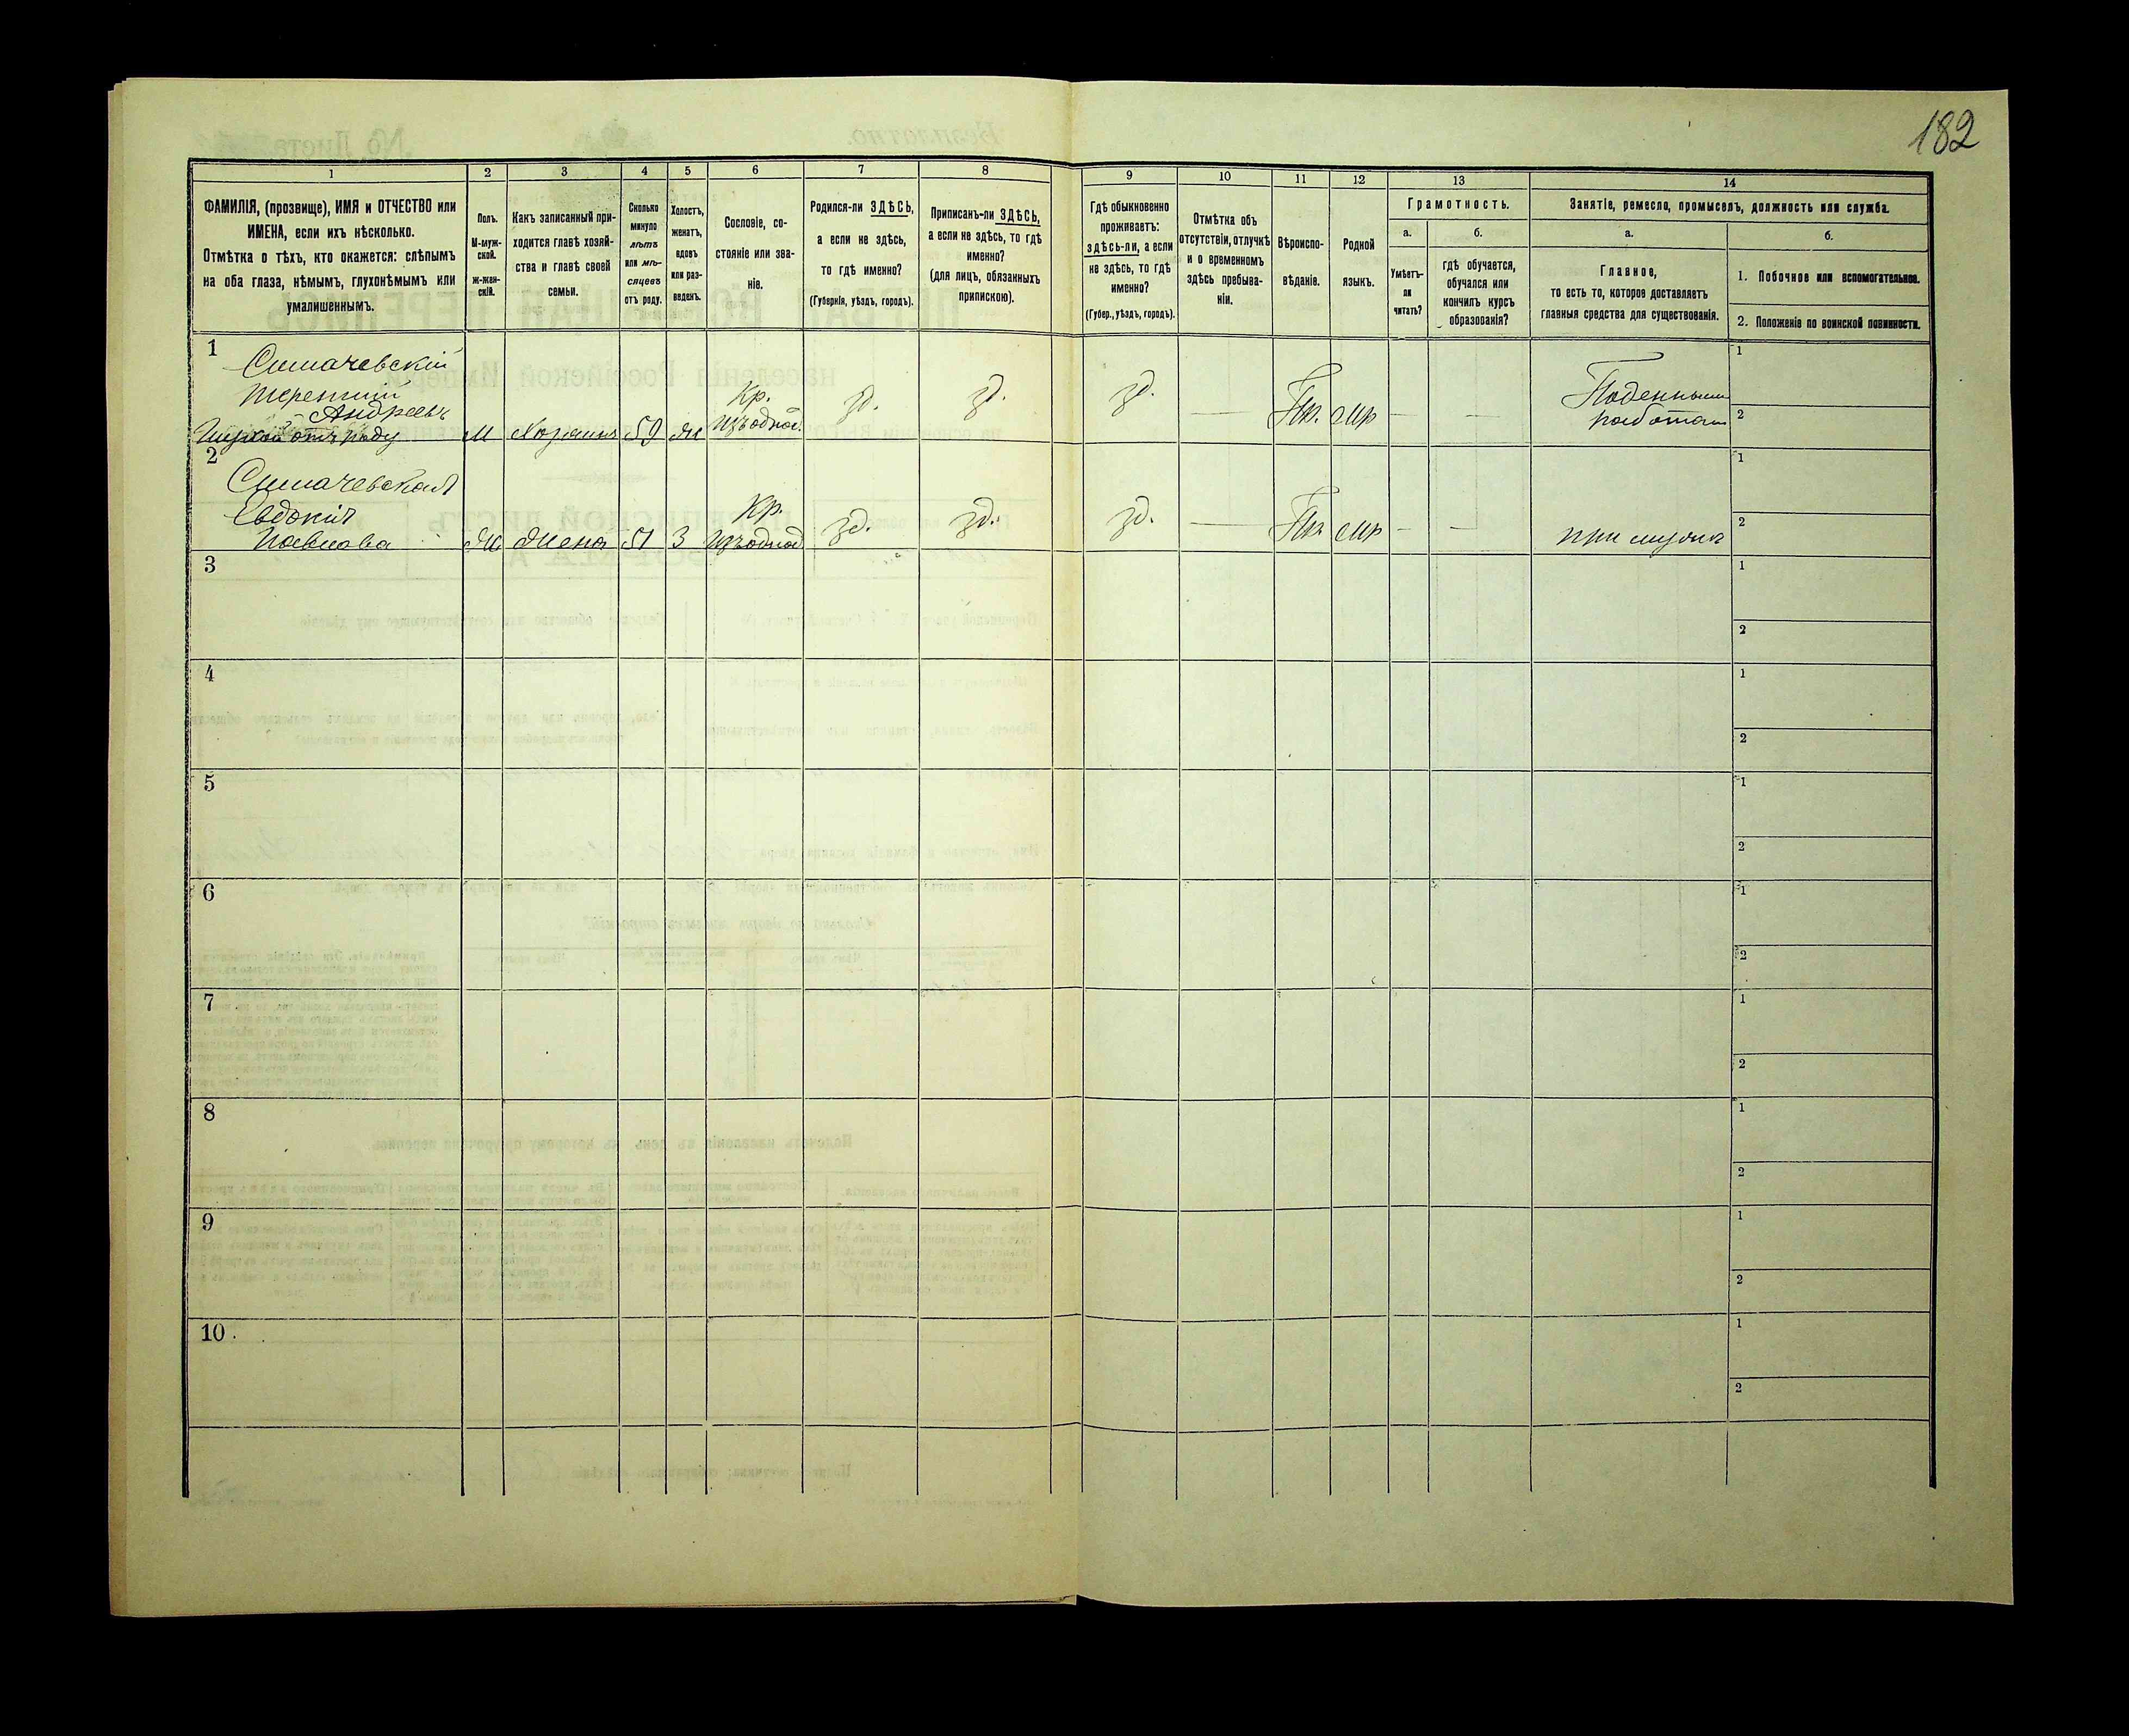 182
1
2
3
4
5
6
7
8
9
10
11
12
13
14
ФАМИЛІЯ, (прозвище), ИМЯ и ОТЧЕСТВО или
ИМЕНА, если ихъ нѣсколько.
Отмѣтка о тѣхъ, кто окажется: слѣпымъ
на оба глаза, нѣмымъ, глухонѣмымъ или
умалишеннымъ.
Полъ.
М-муж-
ской.
Ж-жен-
скій.
Какъ записанный при-
ходится главѣ хозяй-
ства и главѣ своей
семьи.
Сколько
минуло
лѣтъ
или мѣ-
сяцевъ
отъ роду.
Холостъ,
женатъ,
вдовъ
или раз-
веденъ.
Сословіе, со-
стояніе или зва-
ніе.
Родился-ли ЗДѢСЬ,
а если не здѣсь,
то гдѣ именно?
(Губернія, уѣздъ, городъ).
Приписанъ-ли ЗДѢСЬ,
а если не здѣсь, то гдѣ
именно?
(для лицъ, обязанныхъ
припискою).
Гдѣ обыкновенно
проживаетъ:
здѣсь-ли, а если
не здѣсь, то гдѣ
именно?
(Губер., уѣздъ, городъ).
Отмѣтка объ
отсутствіи, отлучкѣ
и о временномъ
здѣсь пребыва-
ніи.
Вѣроиспо-
вѣданіе.
Родной
языкъ.
Грамотность.
а.
Умѣетъ-
ли
читать?
б.
гдѣ обучается,
обучался или
кончилъ курсъ
образованія?
Занятіе, ремесло, промыселъ, должность или служба.
а.
Главное,
то есть то, которое доставляетъ
главныя средства для существованія.
б.
1. Побочное или вспомогательное.
2. Положеніе по воинской повинности.
1
Симачевскій
Терентий
Андреевъ
отъ роду
М
Хозяинъ
59
Кр.
зд.
зд.
зд.
Пр.
мр
Поденныя
работы
1
2
2
Симачевская
Евдокія
Павлова
Ж
Жена
51
З
Кр.
зд.
зд.
зд.
Пр.
мр
при мужѣ
1
2
3
1
2
4
1
2
5
1
2
6
1
2
7
1
2
8
1
2
9
1
2
10
1
2